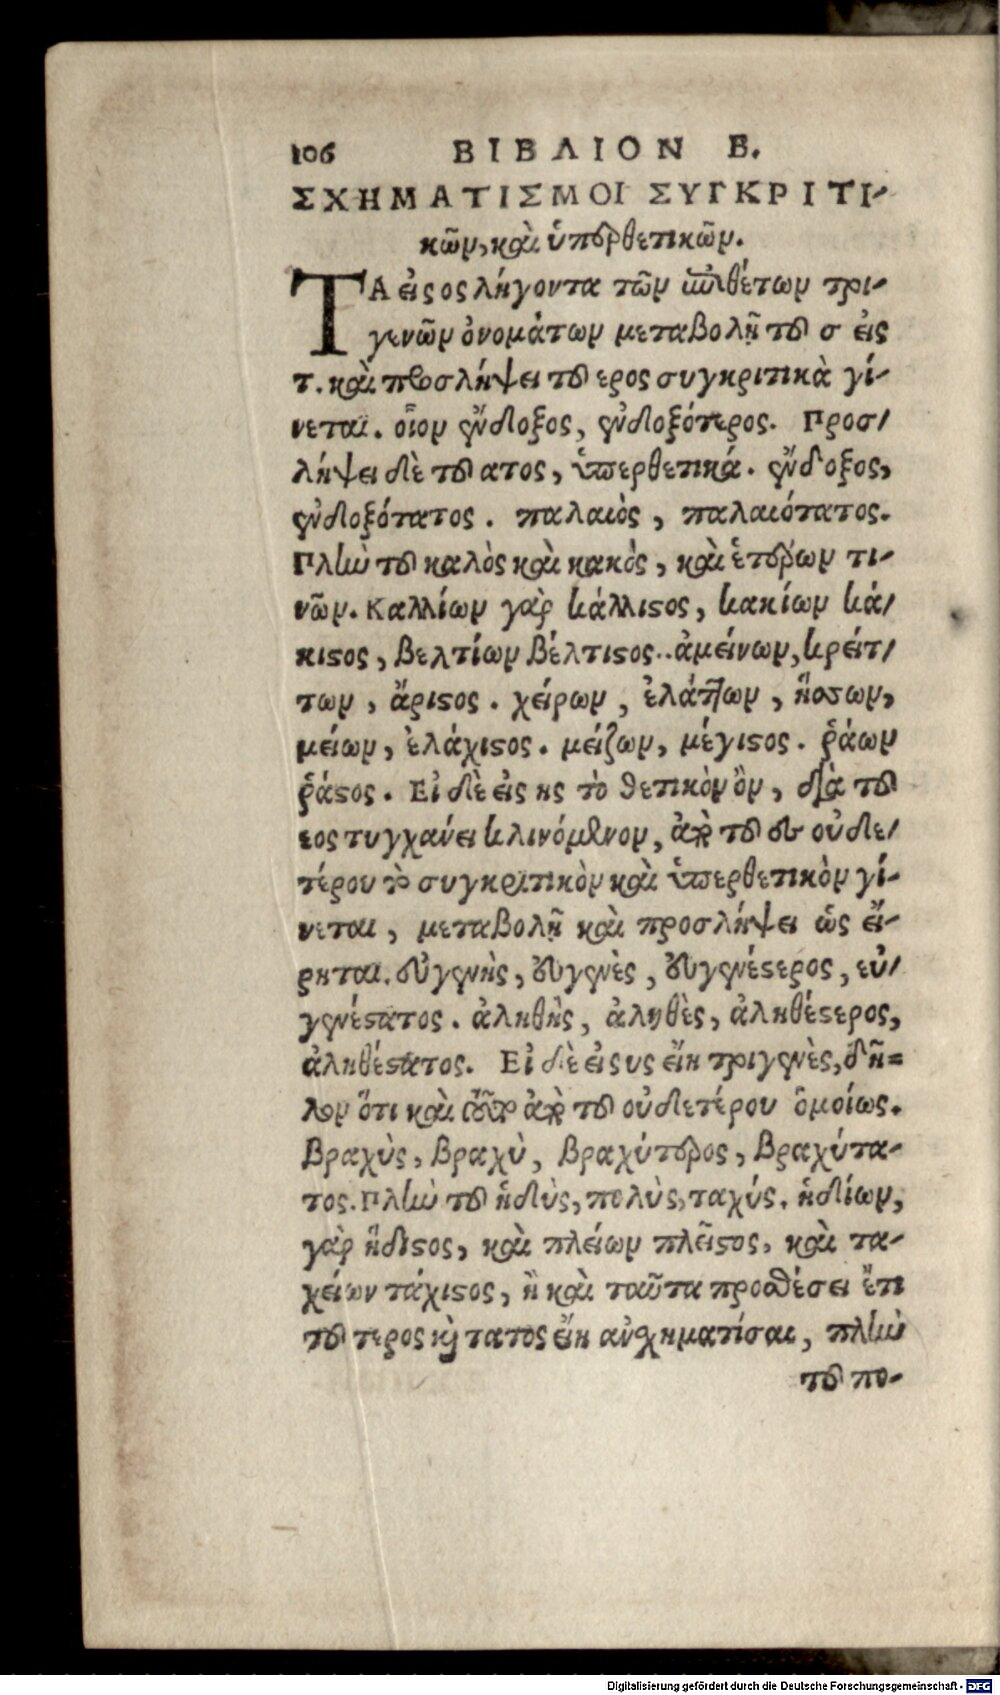 106 ΒΙΒΛΙΟΝ Β.
ΣΧΗΜΑΤΙΣΜΟΙ ΣΥΓΚΡΙΤΙ-
κῶν, καὶ ὑπερθετικῶν.
ΤΑ εἰς ος λήγοντα τῶν ἐπιθέτων τρι-
γενῶν ὀνομάτων μεταβολῇ τοῦ σ εἰς
τ. καὶ προσλήψει τοῦ ερος συγκριτικὰ γί-
νεται. οἷον ἔνδοξος, ἐνδοξότερος. Προσ-
λήψει δὲ τοῦ ατος, ὑπερθετικά. ἔνδοξος,
ἐνδοξότατος. παλαιὸς, παλαιότατος.
Πλὴν τοῦ καλὸς καὶ κακὸς, καὶ ἑτέρων τι-
νῶν. Καλλίων γὰρ κάλλιστος, κακίων κά-
κιστος, βελτίων βέλτιστος..ἀμείνων, κρείτ-
των, ἄριστος. χείρων, ἐλάττων, ἥσσων,
μείων, ἐλάχιστος. μείζων, μέγιστος. ῥάων
ῥάστος. Εἰ δὲ εἰς ης τὸ θετικὸν ὂν, διὰ τοῦ
εος τυγχάνει κλινόμενον, ἀπὸ τοῦ συ οὐδε-
τέρου τὸ συγκριτικὸν καὶ ὑπερθετικὸν γί-
νεται, μεταβολῇ καὶ προσλήψει ὡς εἴ-
ρηται. εὐγενὴς, εὐγενὲς, εὐγενέστερος, εὐ-
γενέστατος. ἀληθὴς, ἀληθὲς, ἀληθέστερος,
ἀληθέστατος. Εἰ δὲ εἰς υς εἴη τριγενὲς, δῆ-
λον ὅτι καὶ ἀπὸ τοῦ οὐδετέρου ὁμοίως.
Βραχὺς, βραχὺ, βραχύτερος, βραχύτα-
τος. Πλὴν τοῦ ἡδὺς, πολὺς, ταχύς. ἡδίων,
γὰρ ἥδιστος, καὶ πλείων πλεῖστος, καὶ τα-
χείων τάχιστος, ἢ καὶ ταῦτα προσθέσει ἔτι
τοῦ τερος καὶ τατος εἴη ἀνσχηματίσαι, πλὴν
τοῦ πο-
Digitalisierung gefördert durch die Deutsche Forschungsgemeinschaft - DFG